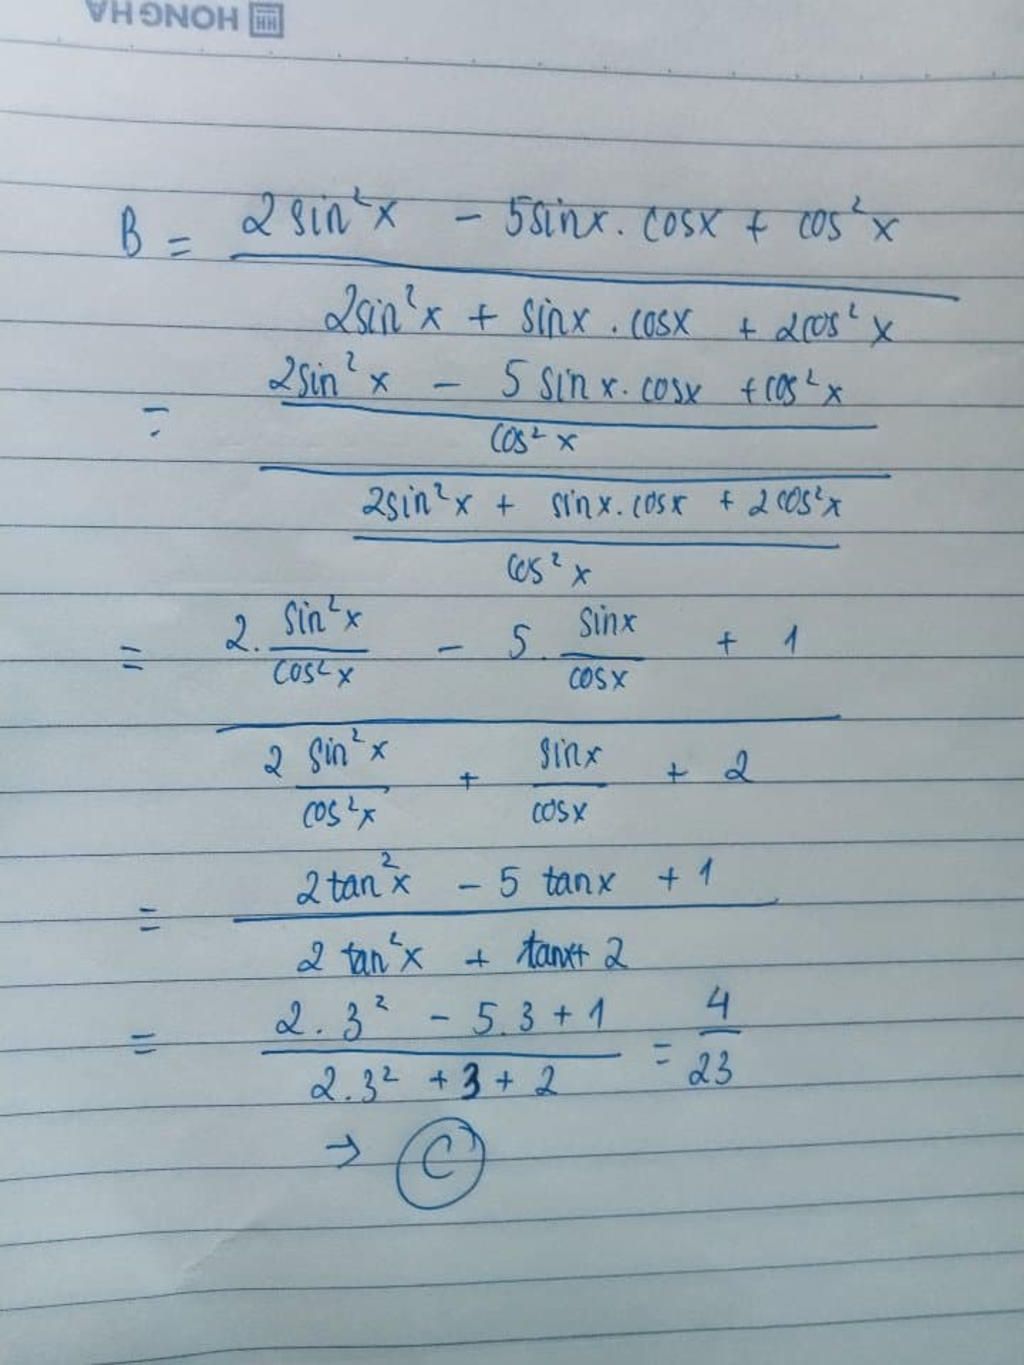 HONG HA
B = 2 sin²x - 5sinx. cosx + cos²x
2sin²x + sinx . cosx + 2cos²x
= 2sin²x - 5 sinx. cosx + cos²x
cos²x
2sin²x + sinx. cosx + 2cos²x
cos²x
= 2. sin²x / cos²x - 5. sinx / cosx + 1
2 sin²x / cos²x + sinx / cosx + 2
= 2tan²x - 5 tanx + 1
2 tan²x + tanx + 2
= 2.3² - 5.3 + 1 = 4
2.3² + 3 + 2 23
→ C